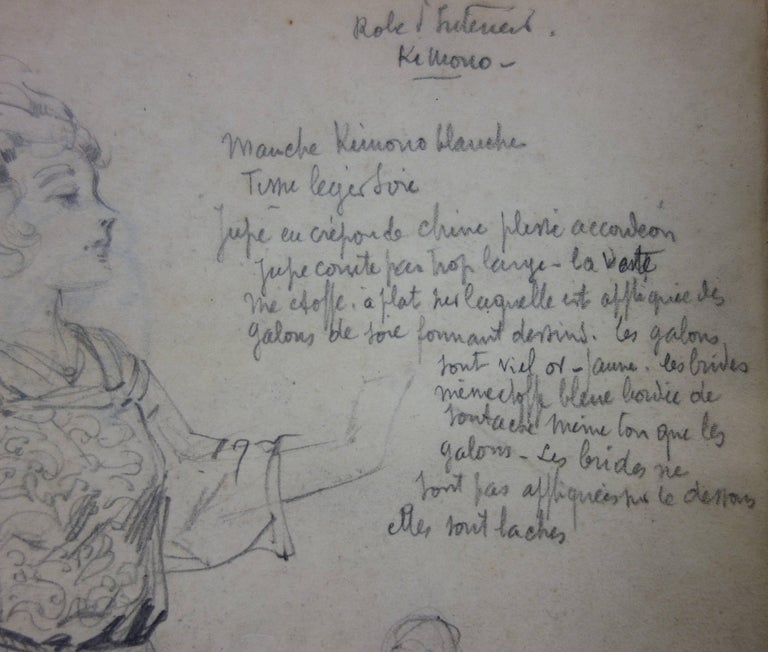 Robe d'Interieur.
Kimono -
Manche Kimono blanche
Tissu leger Soie
Jupe en crépon de chine plissé accordeon
Jupe courte pas trop large - la Veste
me etoffe. à plat sur laquelle est appliquée des
galons de soie formant dessins. les galons
sont vieil or - jaune. les brides
même etoffe bleue bordée de
soutache même ton que les
galons - Les brides ne
sont pas appliquées sur le dessous
elles sont laches